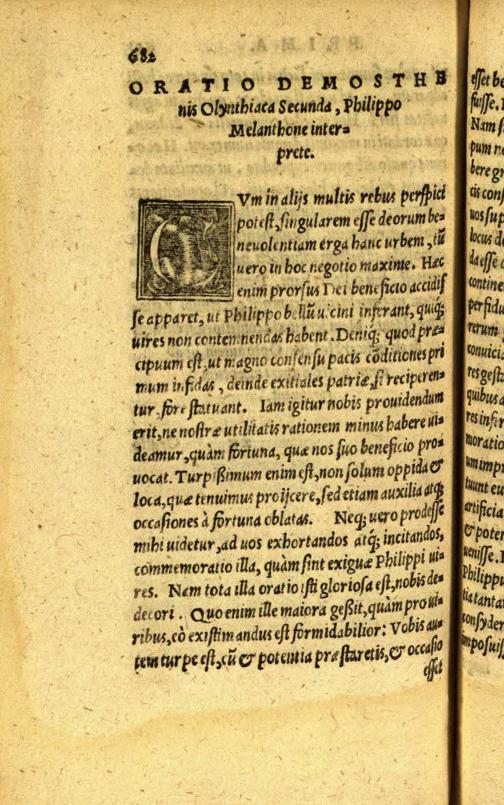 682
ORATIO DEMOSTHE
nis Olynthiaca Secunda, Philippo
Melanthone inter=
prete.
CVm in alijs multis rebus perspici
potest, singularem esse deorum be=
neuolentiam erga hanc urbem, tũ
uero in hoc negotio maxime. Hæc
enim prorsus Dei beneficio accidis
se apparet, ut Philippo bellũ uicini inferant, quiq;
uires non contemnendas habent. Deniq; quod præ=
cipuum est, ut magno consensu pacis cõditiones pri
mum infidas, deinde exitiales patriæ, si reciperen=
tur, fore statuant. Iam igitur nobis prouidendum
erit, ne nostræ utilitatis rationem minus habere ui=
deamur, quàm fortuna, quæ nos suo beneficio pro=
uocat. Turpißimum enim est, non solum oppida &
loca, quæ tenuimus proijcere, sed etiam auxilia atq;
occasiones à fortuna oblatas. Neq; uero prodesse
mihi uidetur, ad uos exhortandos atq; incitandos,
commemoratio illa, quàm sint exiguæ Philippi ui=
res. Nam tota illa oratio isti gloriosa est, nobis de=
decori. Quo enim ille maiora geßit, quàm pro ui=
ribus, eò existimandus est formidabilior: Vobis au=
tem turpe est, cũ & potentia præstaretis, & occasio
esset